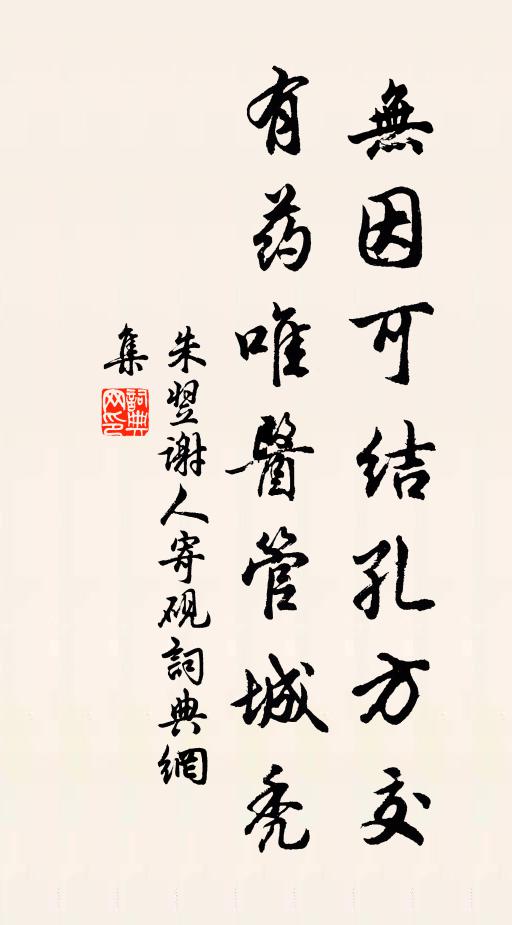 無因可結孔方交
有药唯醫管城秃
朱翌謝人寄硯詞典網
集
詞典
网印